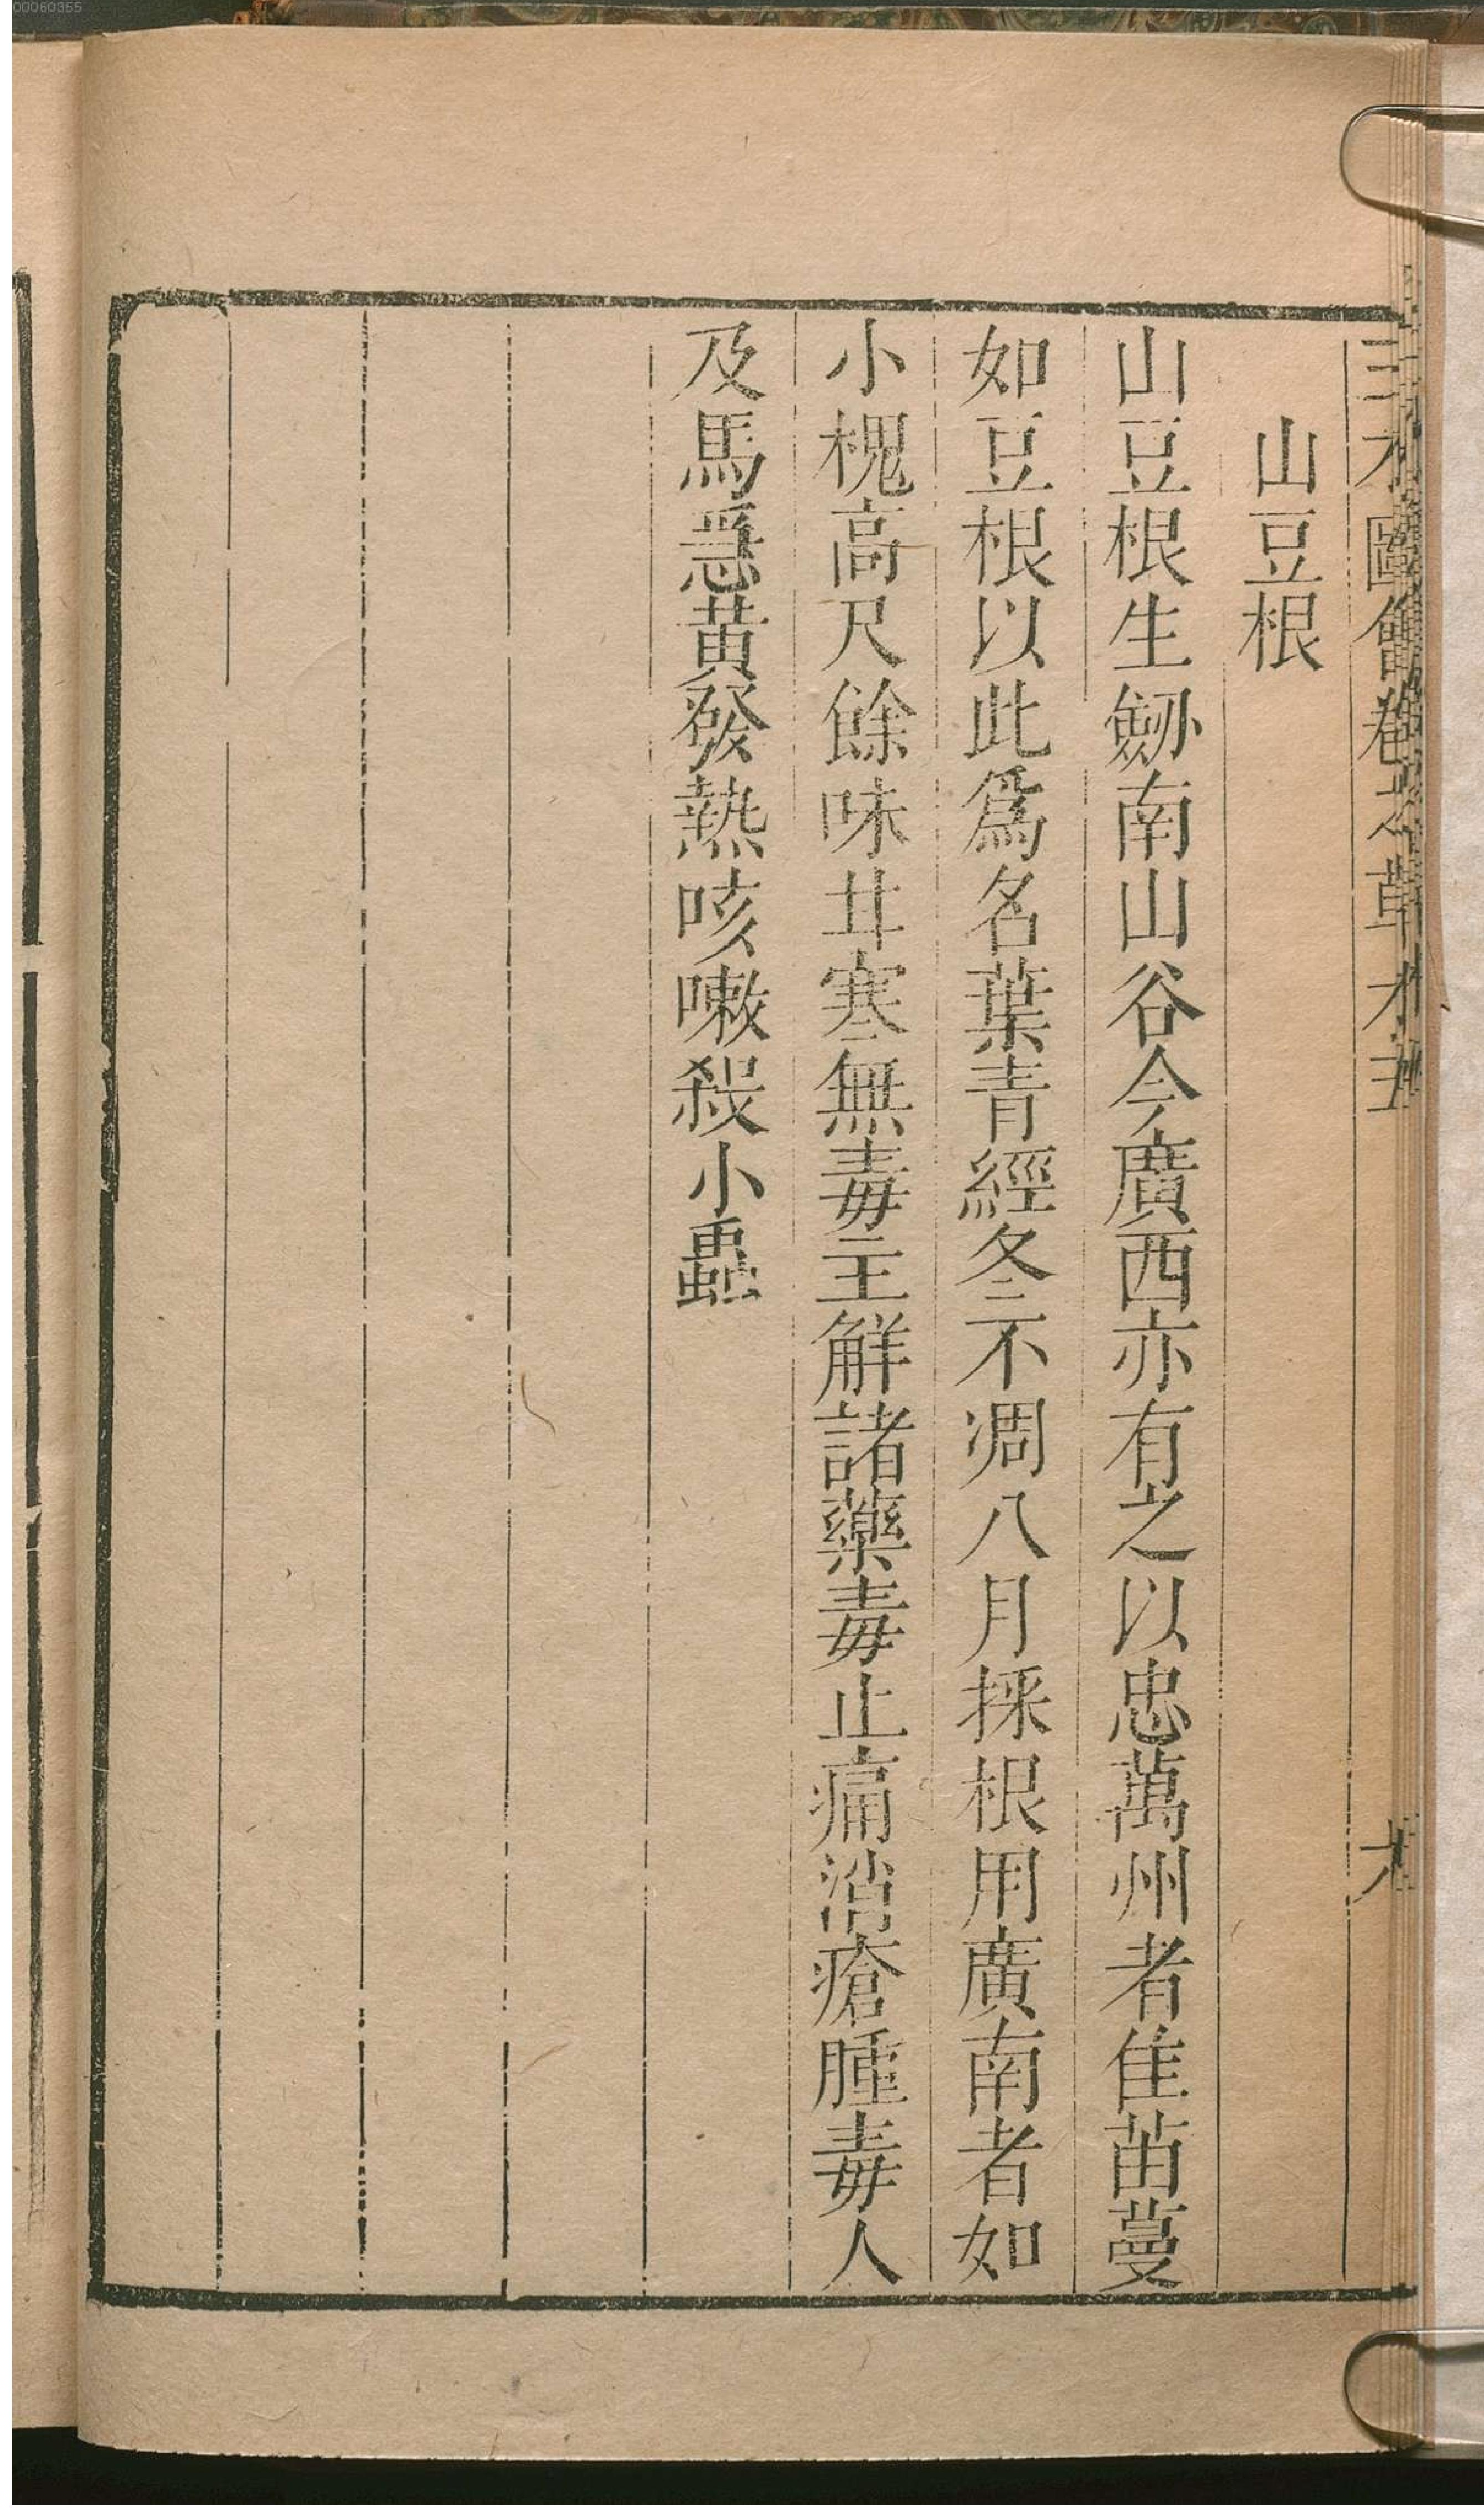 00060355
山豆根
山豆根生劒南山谷今廣西亦有之以忠萬州者隹苗蔓
如豆根以此爲名葉青經冬不凋八月採根用廣南者如
小槐高尺餘味甘寒無毒主解諸藥毒止痛消瘡腫毒人
及馬急黃發熱咳嗽殺小蟲